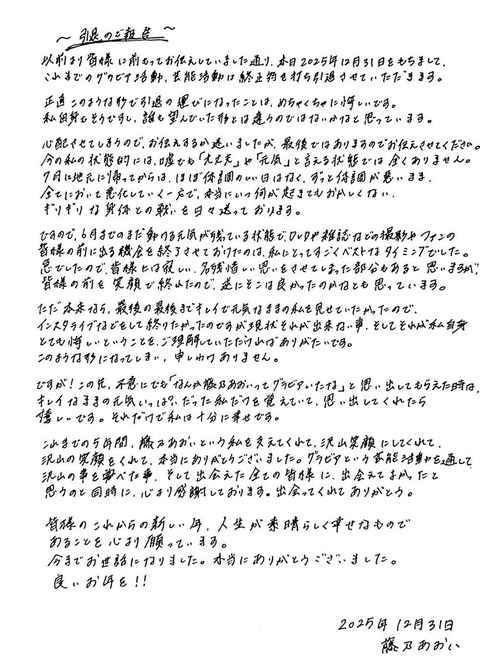 ～ 引退のご報告 ～
以前より皆様に前もってお伝えしていました通り、本日2025年12月31日をもちまして、
これまでのグラビア活動、芸能活動は終止符を打ち引退させていただきます。
正直このような形で引退の運びになったことは、めちゃくちゃに悔しいです。
私自身もそうですし、誰も望んでいた形とは違うのではないかなと思っています。
心配させてしまうので、お伝えするか迷いましたが、最後ではありますのでお伝えさせてください。
今の私の状態的には、嘘でも「大丈夫」や「元気」と言える状態では全くありません。
7月に地元に帰ってからは、ほぼ体調のいい日はなく、ずっと体調が悪いまま、
全てにおいて悪化していく一方で、本当にいつ何が起きてもおかしくない、
ギリギリな身体との戦いを日々送っております。
ですので、6月までのまだ動ける元気が残っている状態で、DVDや雑誌などの撮影やファンの
皆様の前に出る機会を終了させておけたのは、私にとってすごくベストなタイミングでした。
急でしたので、皆様には寂しい、名残惜しい思いをさせてしまった部分もあると思いますが、
皆様の前を笑顔で終れたので、逆にそこは良かったのかなとも思っています。
ただ本来なら、最後の最後までキレイで元気なままの私を見せていたかったので、
インスタライブなどをして終りたかったのですが現状それが出来ない事、そしてそれが私自身
とても悔しいということを、ご理解していただければありがたいです。
このような形になってしまい、申しわけありません。
ですが！この先、不意にでも「なんか藤乃あおいってグラビアいたな」と思い出してもらえた時は、
キレイなままの元気いっぱい？だった私だけを覚えていて、思い出してくれたら
嬉しいです。それだけで私は十分に幸せです。
これまでの5年間、藤乃あおいという私を支えてくれて、沢山笑顔にしてくれて、
沢山の笑顔をくれて、本当にありがとうございました。グラビアという芸能活動を通して
沢山の事を学べた事、そして出会えた全ての皆様に、出会えてよかったと
思うのと同時に、心より感謝しております。出会ってくれてありがとう。
皆様のこれからの新しい年、人生が素晴らしく幸せなもので
あることを心より願っています。
今までお世話になりました。本当にありがとうございました。
良いお年を！！
2025年12月31日
藤乃あおい